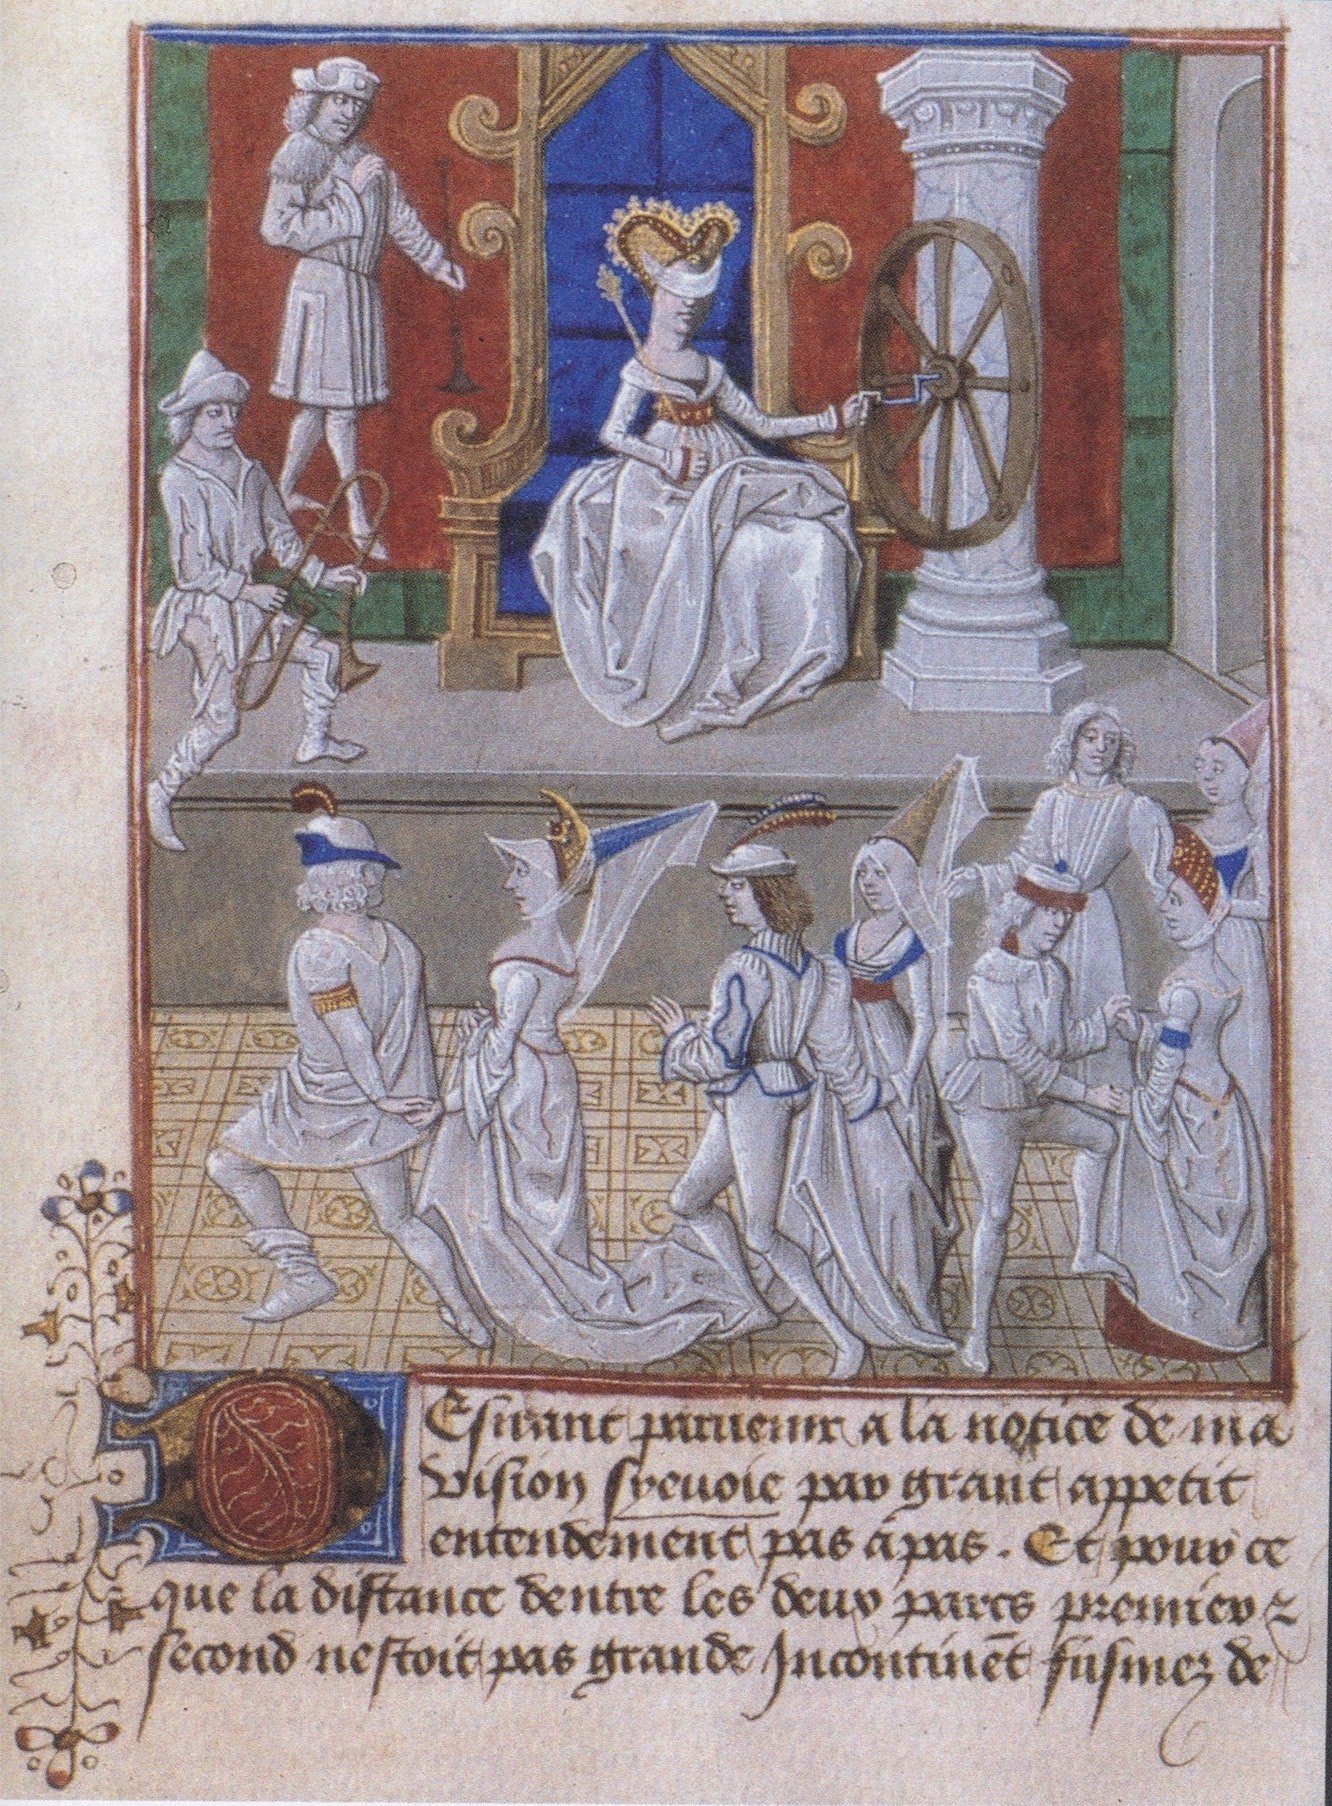 DEsirant paruenir a la notice de ma
vision syeuoie par grant appetit
entendement pas a pas. Et pour ce
que la distance dentre les deux parcs premier ⁊
second nestoit pas grande Incontinẽt fusmez de